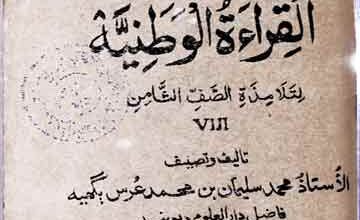 القِراءَةُ الوَطَنِيَّة
لِتَلَامِذَةِ الصَّفِّ الثَّامِنِ
VIII
تاليف وتصييف
الأُستاذ محمد سليمان بن محمد عرس بگهيه
فاضل دار العلوم ديوبند